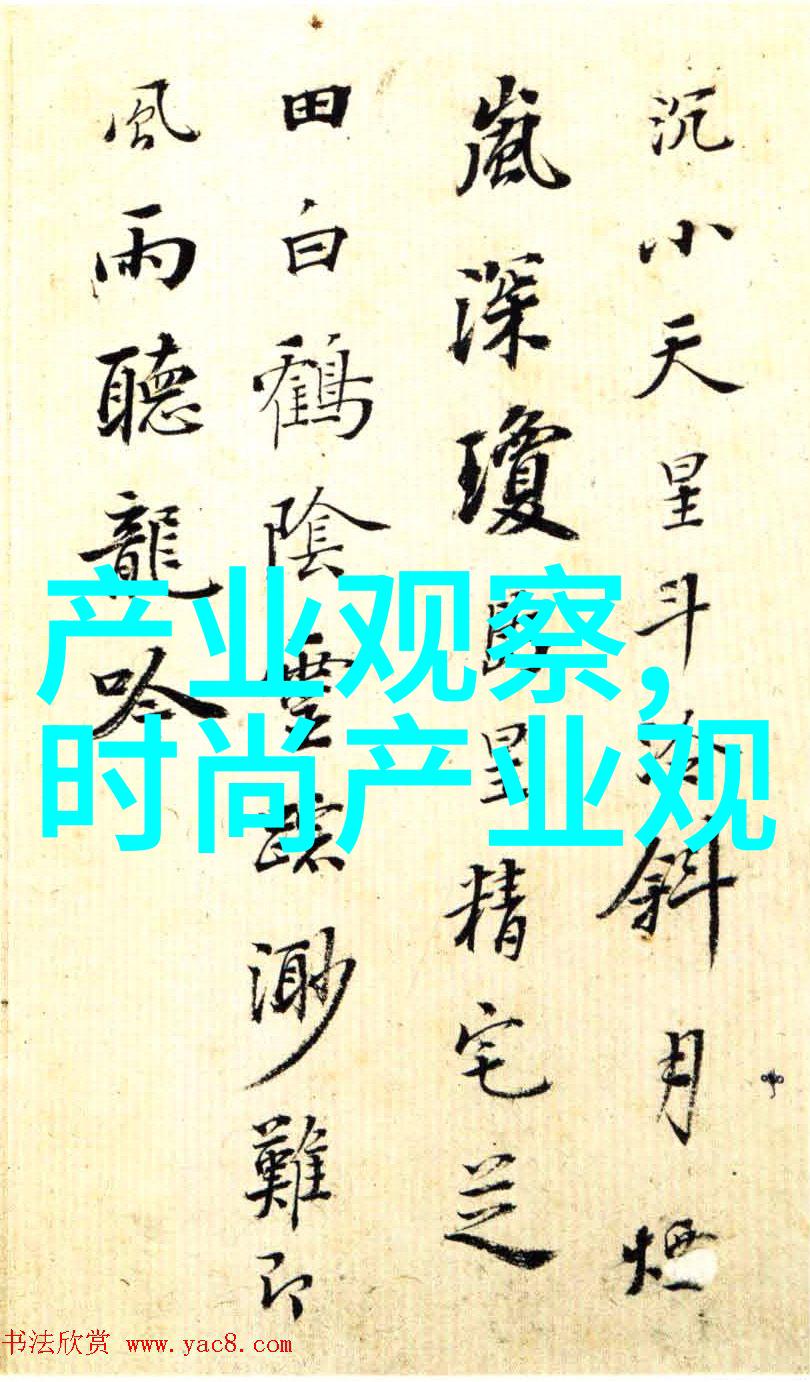 沉小天星斗冷斜月煙
嵐深瓊精宅芝
田白鶴陰雲蹤渺難即
風雨聽龍吟
产业观察,
时尚产业观
书法欣赏 www.yac8.com